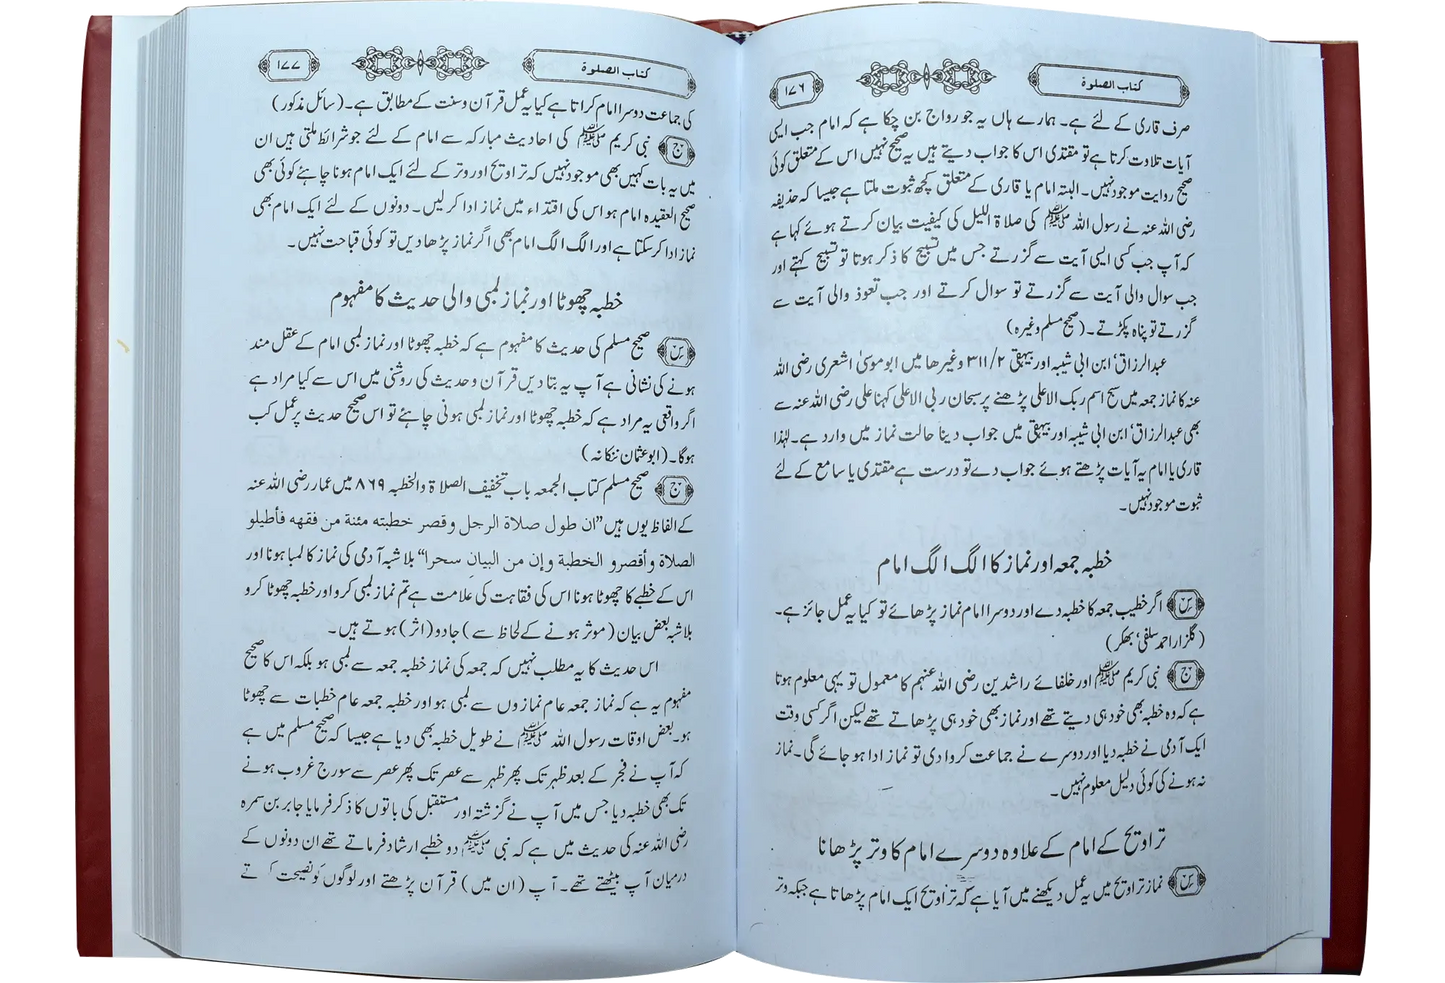 کتاب الصلوٰۃ
۱۷۶
صرف قاری کے لئے ہے۔ ہمارے ہاں یہ جو رواج بن چکا ہے کہ امام جب ایسی
آیات تلاوت کرتا ہے تو مقتدی اس کا جواب دیتے ہیں یہ صحیح نہیں اس کے متعلق کوئی
صحیح روایت موجود نہیں۔ البتہ امام یا قاری کے متعلق کچھ ثبوت ملتا ہے جیسا کہ حذیفہ
رضی اللہ عنہ نے رسول اللہ ﷺ کی صلاۃ اللیل کی کیفیت بیان کرتے ہوئے کہا ہے
کہ آپ جب کسی ایسی آیت سے گزرتے جس میں تسبیح کا ذکر ہوتا تو تسبیح کہتے اور
جب سوال والی آیت سے گزرتے تو سوال کرتے اور جب تعوذ والی آیت سے
گزرتے تو پناہ پکڑتے۔ (صحیح مسلم وغیرہ)
عبدالرزاق‘ ابن ابی شیبہ اور بیہقی ۳۱۱/۲ وغیرھا میں ابو موسیٰ اشعری رضی اللہ
عنہ کا نماز جمعہ میں سبح اسم ربک الاعلی پڑھنے پر سبحان ربی الاعلی کہنا علی رضی اللہ عنہ سے
بھی عبدالرزاق‘ ابن ابی شیبہ اور بیہقی میں جواب دینا حالت نماز میں وارد ہے۔ لہٰذا
قاری یا امام یہ آیات پڑھتے ہوئے جواب دے تو درست ہے مقتدی یا سامع کے لئے
ثبوت موجود نہیں۔
خطبہ جمعہ اور نماز کا الگ الگ امام
س اگر خطیب جمعہ کا خطبہ دے اور دوسرا امام نماز پڑھائے تو کیا یہ عمل جائز ہے۔
(گلزار احمد سلفی‘ بھکر)
ج نبی کریم ﷺ اور خلفائے راشدین رضی اللہ عنہم کا معمول تو یہی معلوم ہوتا
ہے کہ وہ خطبہ بھی خود ہی دیتے تھے اور نماز بھی خود ہی پڑھاتے تھے لیکن اگر کسی وقت
ایک آدمی نے خطبہ دیا اور دوسرے نے جماعت کروا دی تو نماز ادا ہو جائے گی۔ نماز
نہ ہونے کی کوئی دلیل معلوم نہیں۔
تراویح کے امام کے علاوہ دوسرے امام کا وتر پڑھانا
س نماز تراویح میں یہ عمل دیکھنے میں آیا ہے کہ تراویح ایک امام پڑھاتا ہے جبکہ وتر
کتاب الصلوٰۃ
۱۷۷
کی جماعت دوسرا امام کراتا ہے کیا یہ عمل قرآن وسنت کے مطابق ہے۔ (سائل مذکور)
ج نبی کریم ﷺ کی احادیث مبارکہ سے امام کے لئے جو شرائط ملتی ہیں ان
میں یہ بات کہیں بھی موجود نہیں کہ تراویح اور وتر کے لئے ایک امام ہونا چاہئے کوئی بھی
صحیح العقیدہ امام ہو اس کی اقتداء میں نماز ادا کر لیں۔ دونوں کے لئے ایک امام بھی
نماز ادا کر سکتا ہے اور الگ الگ امام بھی اگر نماز پڑھا دیں تو کوئی قباحت نہیں۔
خطبہ چھوٹا اور نماز لمبی والی حدیث کا مفہوم
س صحیح مسلم کی حدیث کا مفہوم ہے کہ خطبہ چھوٹا اور نماز لمبی امام کے عقل مند
ہونے کی نشانی ہے آپ یہ بتا دیں قرآن وحدیث کی روشنی میں اس سے کیا مراد ہے
اگر واقعی یہ مراد ہے کہ خطبہ چھوٹا اور نماز لمبی ہونی چاہئے تو اس صحیح حدیث پر عمل کب
ہوگا۔ (ابو عثمان ننکانہ)
ج صحیح مسلم کتاب الجمعہ باب تخفیف الصلاۃ والخطبہ ۸۶۹ میں عمار رضی اللہ عنہ
کے الفاظ یوں ہیں ”ان طول صلاة الرجل وقصر خطبته مئنة من فقهه فأطيلو
الصلاة وأقصرو الخطبة وإن من البيان سحرا“ بلاشبہ آدمی کی نماز کا لمبا ہونا اور
اس کے خطبے کا چھوٹا ہونا اس کی فقاہت کی علامت ہے تم نماز لمبی کرو اور خطبہ چھوٹا کرو
بلاشبہ بعض بیان (موثر ہونے کے لحاظ سے) جادو (اثر) ہوتے ہیں۔
اس حدیث کا یہ مطلب نہیں کہ جمعہ کی نماز خطبہ جمعہ سے لمبی ہو بلکہ اس کا صحیح
مفہوم یہ ہے کہ نماز جمعہ عام نمازوں سے لمبی ہو اور خطبہ جمعہ عام خطبات سے چھوٹا
ہو۔ بعض اوقات رسول اللہ ﷺ نے طویل خطبہ بھی دیا ہے جیسا کہ صحیح مسلم میں ہے
کہ آپ نے فجر کے بعد ظہر تک پھر ظہر سے عصر تک پھر عصر سے سورج غروب ہونے
تک بھی خطبہ دیا جس میں آپ نے گزشتہ اور مستقبل کی باتوں کا ذکر فرمایا جابر بن سمرہ
رضی اللہ عنہ کی حدیث میں ہے کہ نبی ﷺ دو خطبے ارشاد فرماتے تھے ان دونوں کے
درمیان آپ بیٹھتے تھے۔ آپ (ان میں) قرآن پڑھتے اور لوگوں کو نصیحت کرتے